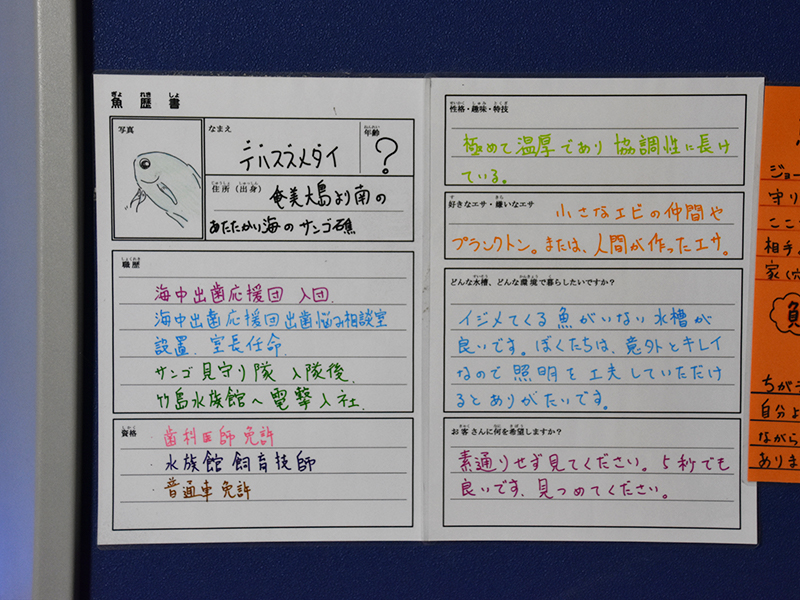 魚歴書
ぎょ れき しょ
写真
なまえ
デバスズメダイ
年齢
ねんれい
?
じゅうしょ しゅっしん
住所(出身)
奄美大島より南の
あたたかい海のサンゴ礁
しょくれき
職歴
海中出歯応援団 入団.
海中出歯応援団出歯悩み相談室
設置. 室長任命.
サンゴ見守り隊 入隊後.
竹島水族館へ電撃入社.
しかく
資格
歯科医師免許
・水族館飼育技師
・普通車免許
せいかく しゅみ とくぎ
性格・趣味・特技
極めて温厚であり協調性に長け
ている。
す きら
好きなエサ・嫌いなエサ
小さなエビの仲間や
プランクトン。または、人間が作ったエサ。
すいそう かんきょう く
どんな水槽、どんな環境で暮らしたいですか?
イジメてくる魚がいない水槽が
良いです。ぼくたちは、意外とキレイ
なので照明を工夫していただけ
るとありがたいです。
きゃく なに きぼう
お客さんに何を希望しますか?
素通りせず見てください。5秒でも
良いです。見つめてください。
ジョー
守り
ここ
相手
家(穴
魚
ちがう
自分よ
ながら
ありま